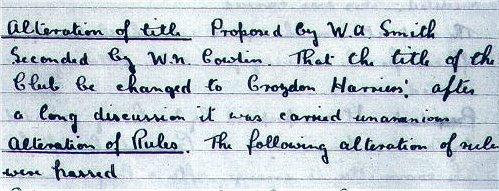 Alteration of title Proposed by W.A Smith
Seconded by W.N. Cowlin. That the title of the
Club be changed to Croydon Harriers: after
a long discussion it was carried unanimous
Alteration of Rules. The following alteration of rules
were passed